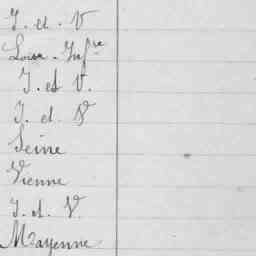 I. et V
Loire - Infre
I. et V.
I. et V
Seine
Vienne
I. et. V.
Mayenne